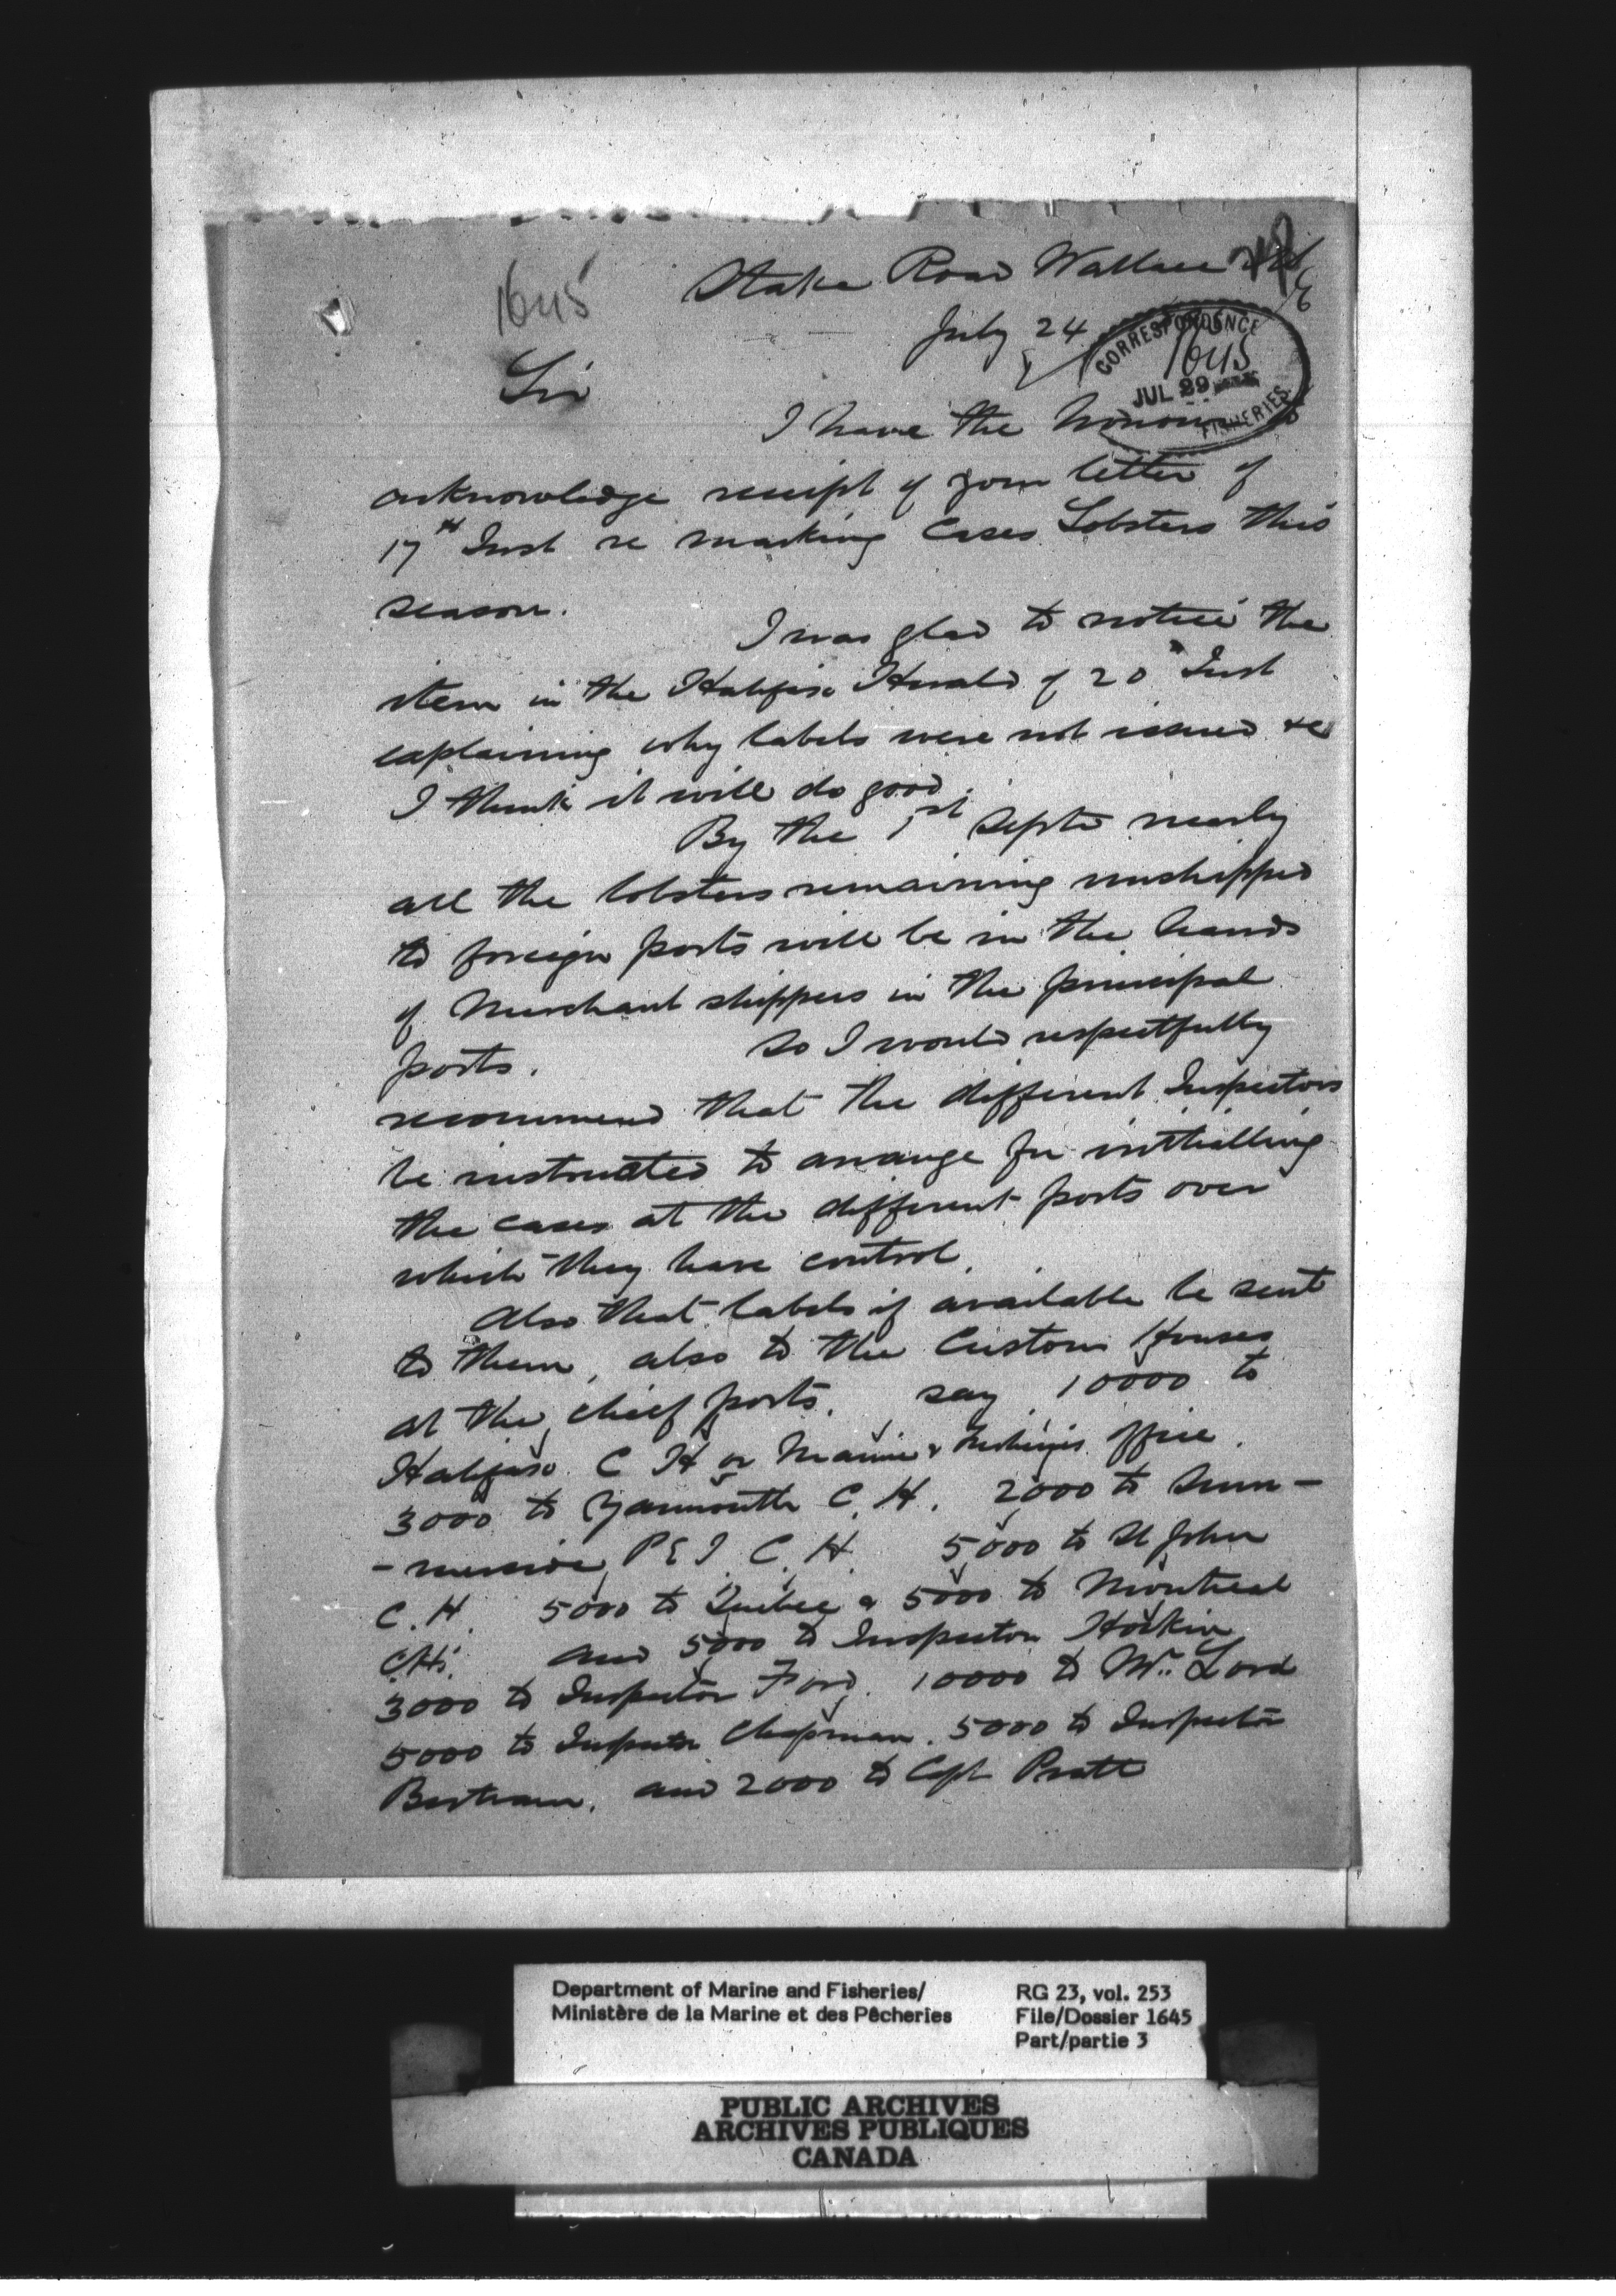 1645
Stake Road Wallace
July 24
CORRESPONDENCE
1645
JUL 29
FISHERIES
Sir
I have the honour to
acknowledge receipt of your letter of
17th Inst re marking Cases Lobsters this
season.
I was glad to notice the
item in the Halifax Herald of 20th Inst
explaining why labels were not issued &c
I think it will do good.
By the 1st Septr nearly
all the lobsters remaining unshipped
to foreign ports will be in the hands
of Merchant shippers in the principal
ports.
So I would respectfully
recommend that the different Inspectors
be instructed to arrange for initialling
the cases at the different ports over
which they have control.
Also that labels if available be sent
to them, also to the Custom Houses
at the chief ports. say 10000 to
Halifax C H or Marine & Fisheries office.
3000 to Yarmouth C. H. 2000 to Sum-
-merside P E I. C. H. 5000 to St John
C. H. 5000 to Quebec & 5000 to Montreal
C H. and 5000 to Inspector Hockin
3000 to Inspector Ford. 10000 to Mr. Lord
5000 to Inspector Chapman. 5000 to Inspector
Bertram. and 2000 to Cpt Pratt
Department of Marine and Fisheries/
Ministère de la Marine et des Pêcheries
RG 23, vol. 253
File/Dossier 1645
Part/partie 3
PUBLIC ARCHIVES
ARCHIVES PUBLIQUES
CANADA